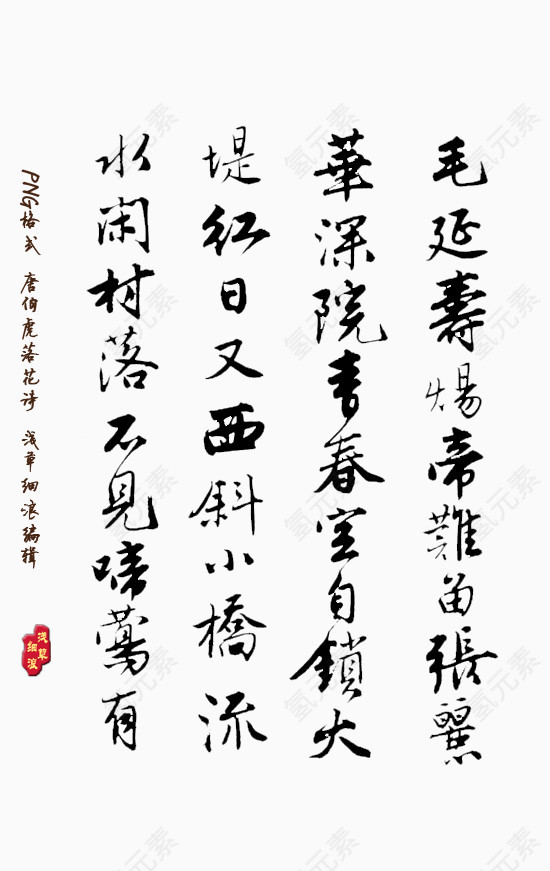 毛延壽煬帝難留張麗
華深院青春空自鎖大
堤紅日又西斜小橋流
水闲村落不見啼鶯有
PNG格式 唐伯虎落花诗 浅草细浪编辑
浅草
细浪
氢元素